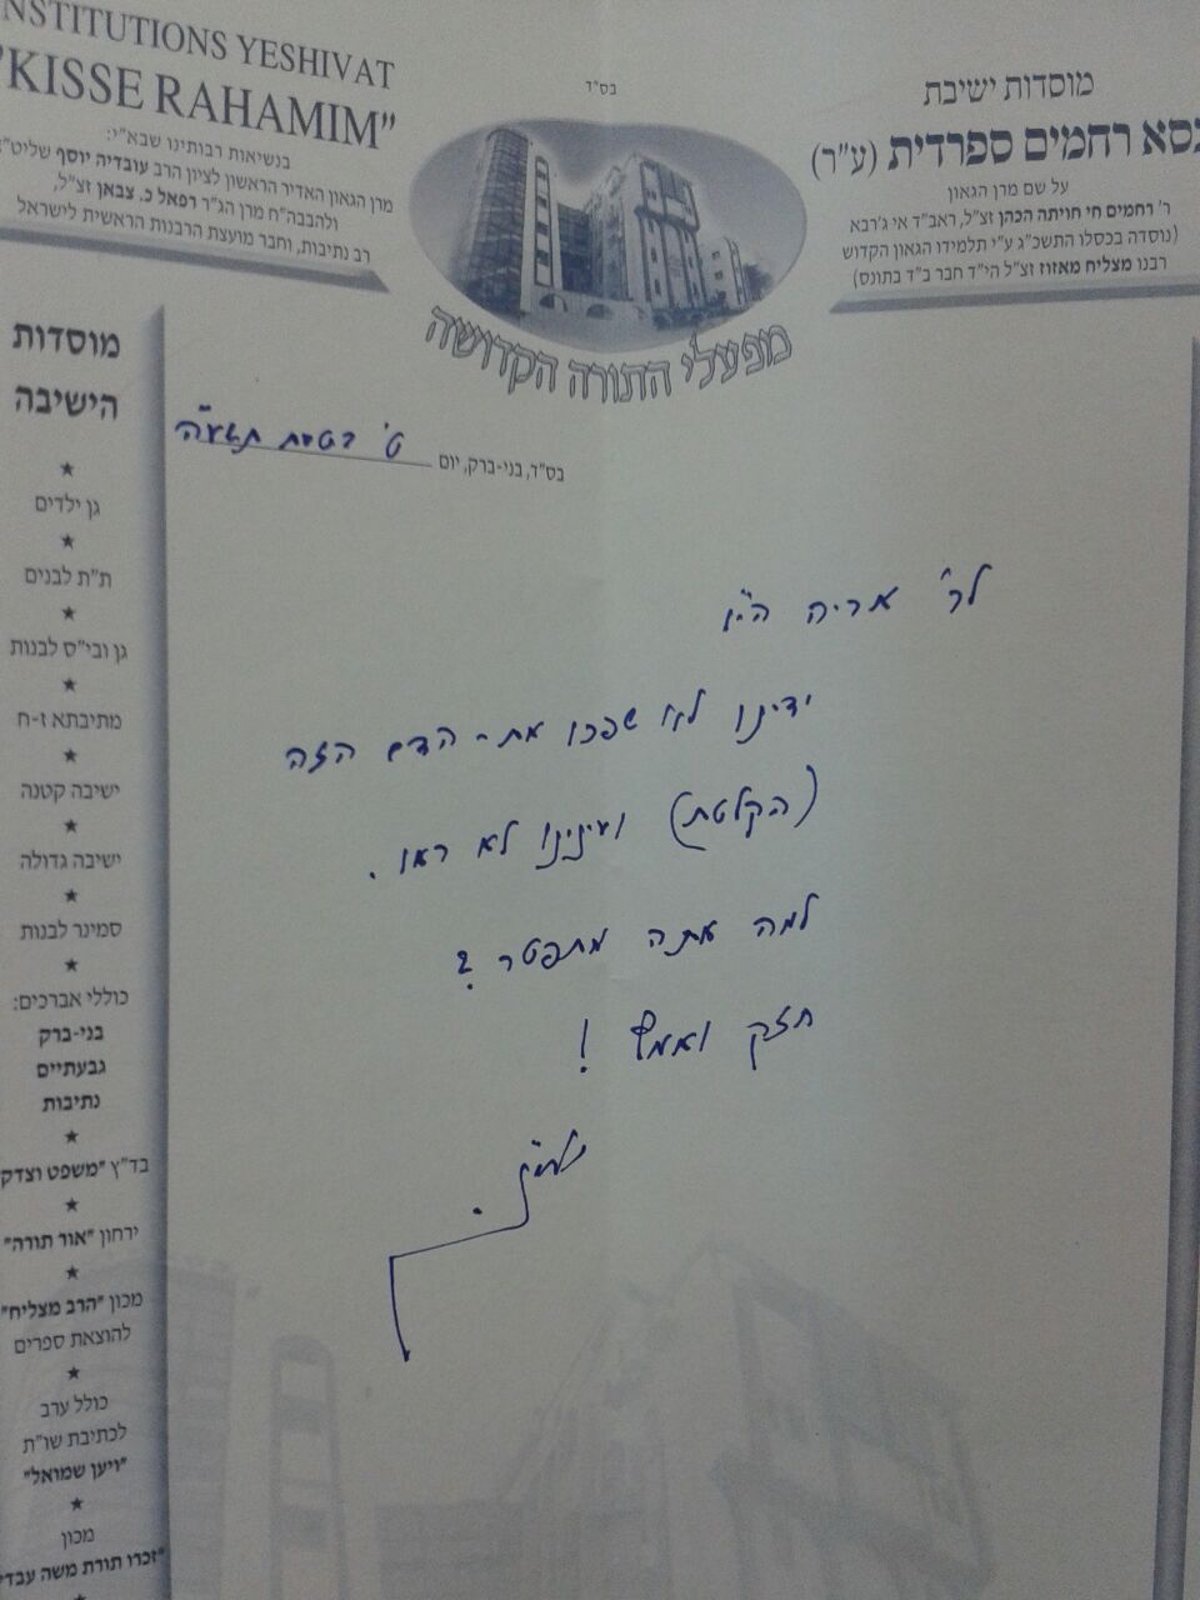 בס"ד
NSTITUTIONS YESHIVAT
"KISSE RAHAMIM"
בנשיאות רבותינו שבא"י:
מרן הגאון האדיר הראשון לציון הרב עובדיה יוסף שליט"א
ולהבבה"ח מרן הג"ר רפאל כ. צבאן זצ"ל,
רב נתיבות, וחבר מועצת הרבנות הראשית לישראל
מוסדות ישיבת
כסא רחמים ספרדית (ע"ר)
על שם מרן הגאון
ר' רחמים חי חויתה הכהן זצ"ל, ראב"ד אי ג'רבא
(נוסדה בכסלו התשכ"ג ע"י תלמידו הגאון הקדוש
רבנו מצליח מאזוז זצ"ל הי"ד חבר ב"ד בתונס)
מפעלי התורה הקדושה
בס"ד, בני-ברק, יום ט' בטבת תשע"ה
לר' אריה הי"ו
ידינו לא שפכו את - הדם הזה
(הקלטת) ועינינו לא ראו.
למה אתה מתפטר?
חזק ואמץ!
מוסדות
הישיבה
גן ילדים
ת"ת לבנים
גן ובי"ס לבנות
מתיבתא ז-ח
ישיבה קטנה
ישיבה גדולה
סמינר לבנות
כוללי אברכים:
בני-ברק
גבעתיים
נתיבות
בד"ץ "משפט וצדק"
ירחון "אור תורה"
מכון "הרב מצליח"
להוצאת ספרים
כולל ערב
לכתיבת שו"ת
"ויען שמואל"
מכון
"זכרו תורת משה עבדי